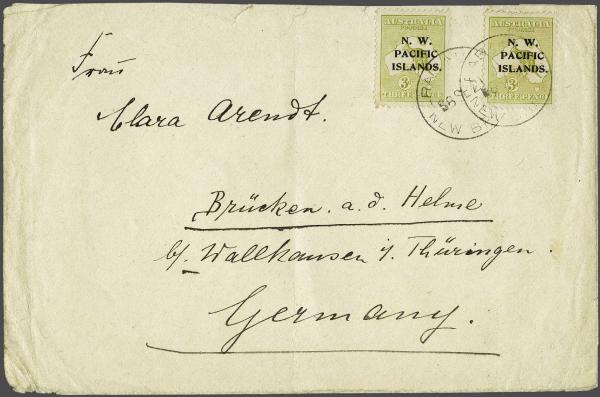 AUSTRALIA
POSTAGE
N. W.
PACIFIC
ISLANDS.
3
THREE PENCE
AUSTRALIA
POSTAGE
N. W.
PACIFIC
ISLANDS.
3
THREE PENCE
RABAUL
NEW B
RABAUL
NEW
Frau
Clara Arendt.
Brücken. a. d. Helme
b/ Wallhausen i/ Thüringen.
Germany.